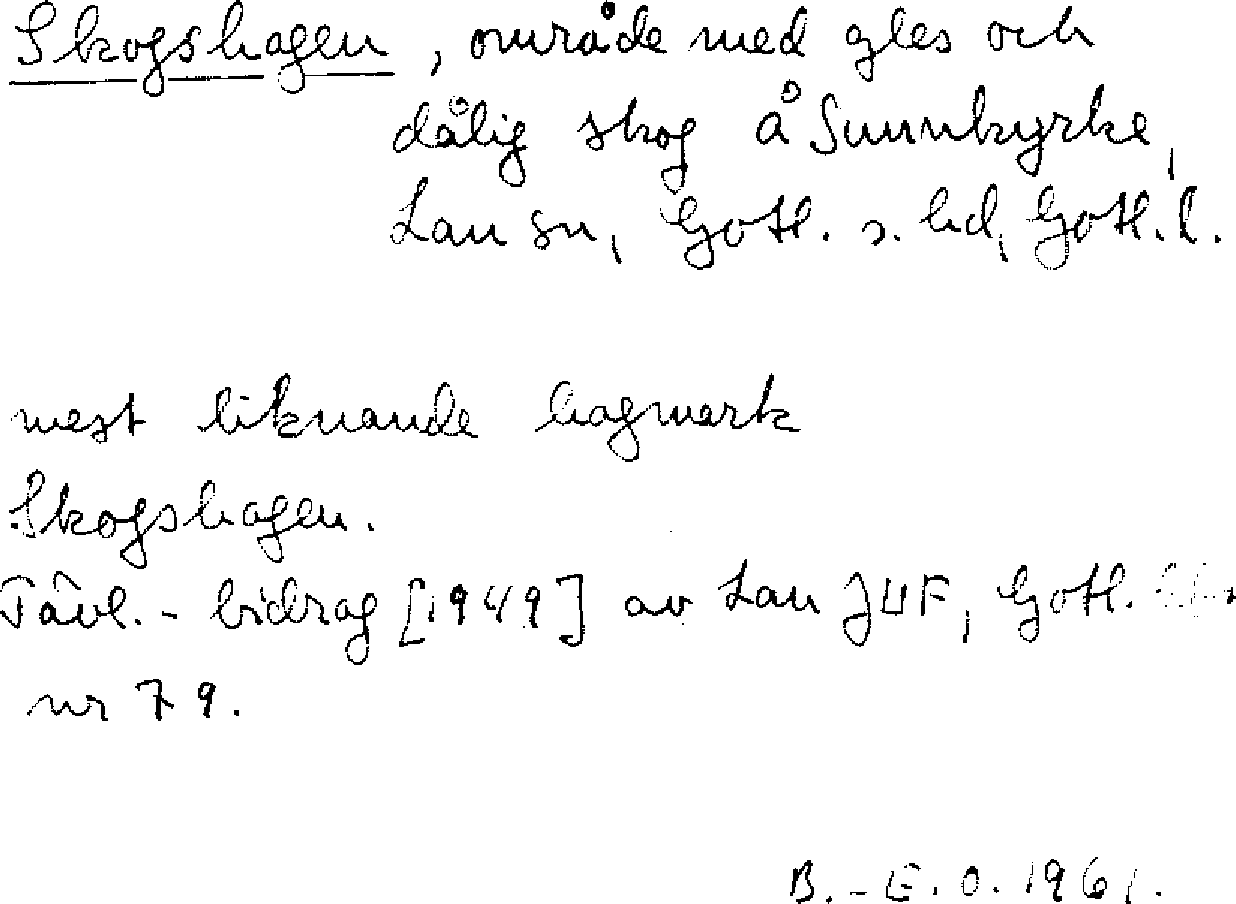 Skogshagen, område med gles och
dålig skog å Sunnkyrke,
Lau sn, Gotl. s. hd, Gotl. l.
mest liknande hagmark
Skogshagen.
Tävl.-bidrag [1949] av Lau JUF, Gotl.
nr 79.
B.-E. O. 1961.